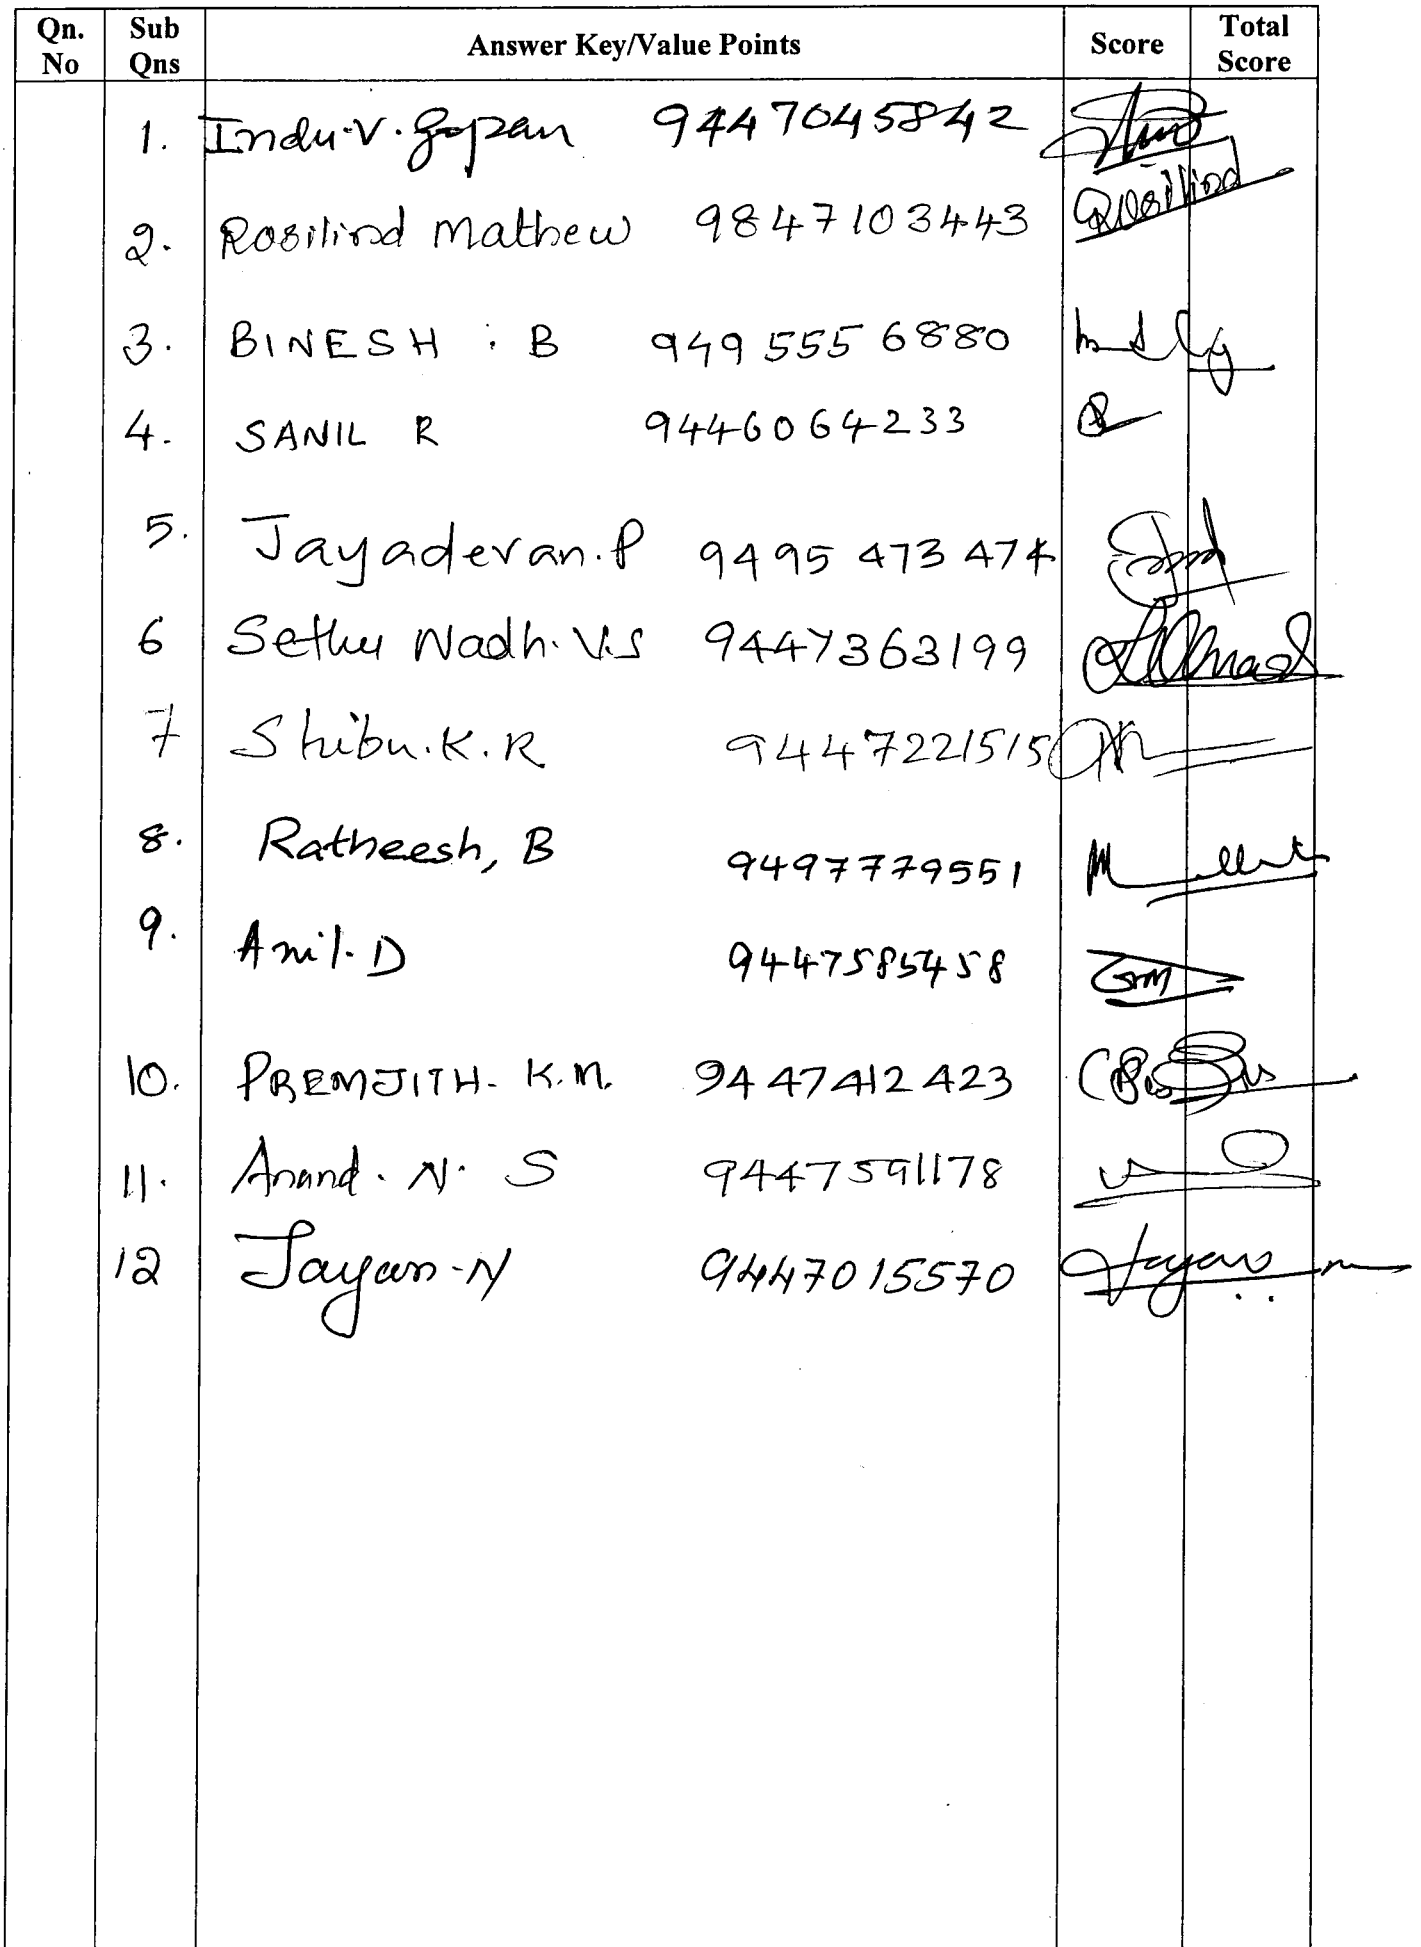 Qn. No Sub Qns Answer Key/Value Points Score Total Score
1. Indu.V.Gopan 9447045842
2. Rosilind Mathew 9847103443 Rosilind
3. BINESH . B 949 555 6880
4. SANIL R 9446064233
5. Jayadevan.P 9495 473 474
6 Sethu Nadh.V.S 9447363199
7 Shibu.K.R 9447221515
8. Ratheesh, B 9497779551
9. Anil.D 9447585458
10. PREMJITH- K.M. 9447412423
11. Anand. N. S 9447591178
12 Jayan-N 9447015570 Jayan